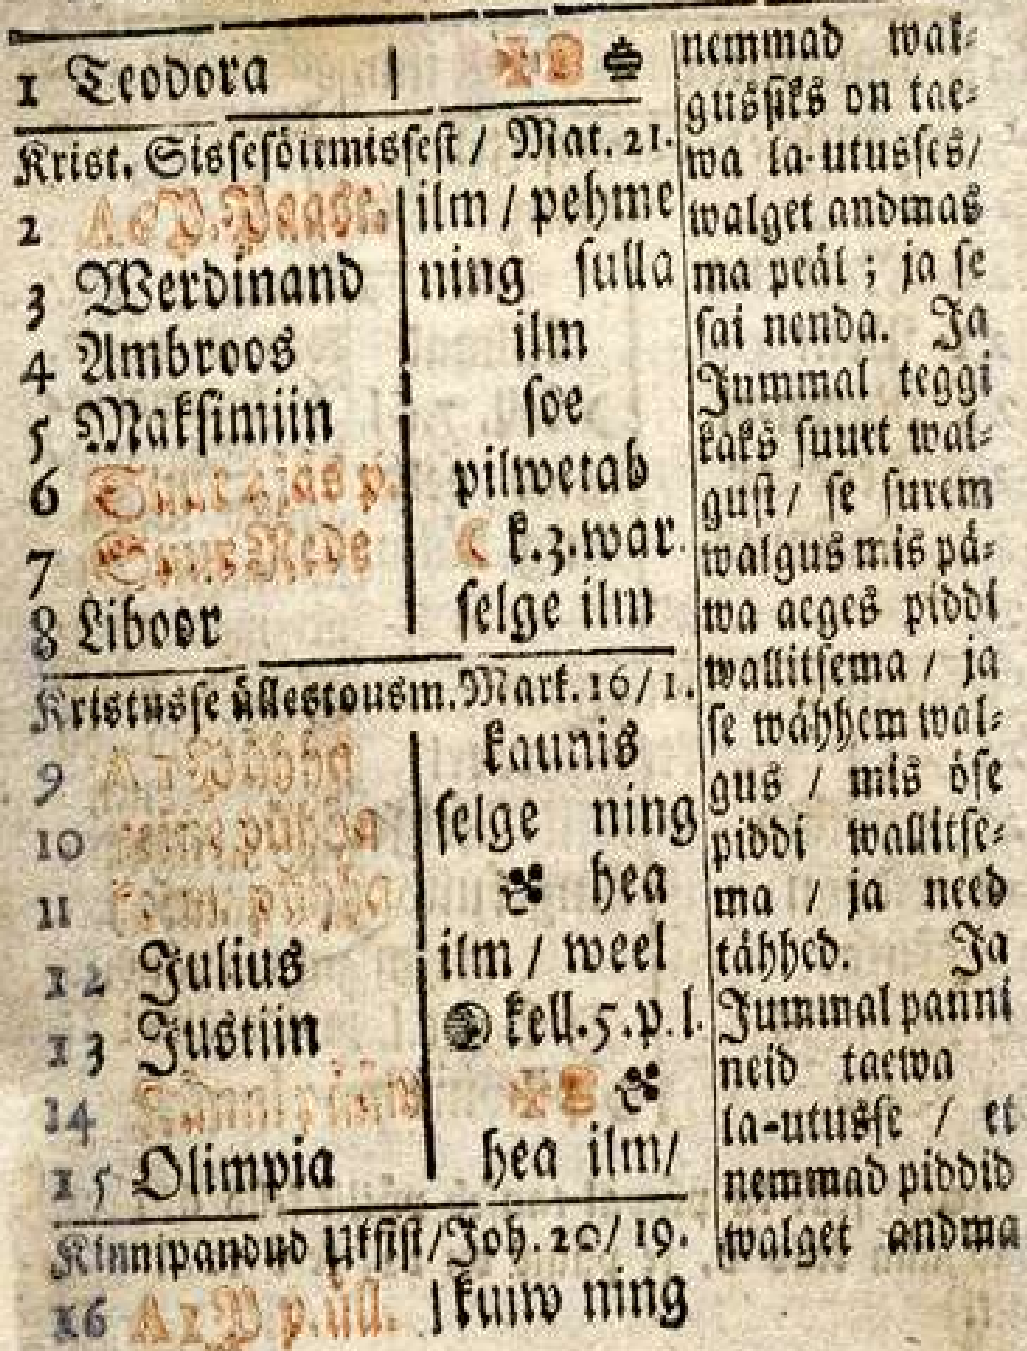 1 Teodora
Krist. Sissesöitmissest / Mat. 21.
2 ilm / pehme
3 Werdinand ning sulla
4 Ambroos ilm
5 Maksimiin soe
6 pilwetab
7 Suur Rede k. 3. war.
8 Liboor selge ilm
Kristusse üllestousm. Mark. 16 / 1.
9 A 1 Pühha kaunis
10 teine pühha selge ning
11 kolm. pühha hea
12 Julius ilm / weel
13 Justiin kell. 5. p. l.
14
15 Olimpia hea ilm /
Kinnipandud Uksist / Joh. 20 / 19.
16 A 1 P p. üll. kuiw ning
nemmad wal-
gussiks on tae-
wa la-utusses /
walget andmas
ma peäl ; ja se
sai nenda. Ja
Jummal teggi
kaks suurt wal-
gust / se surem
walgus mis pä-
wa aeges piddi
wallitsema / ja
se wähhem wal-
gus / mis öse
piddi wallitse-
ma / ja need
tähhed. Ja
Jummal panni
neid taewa
la-utusse / et
nemmad piddid
walget andma